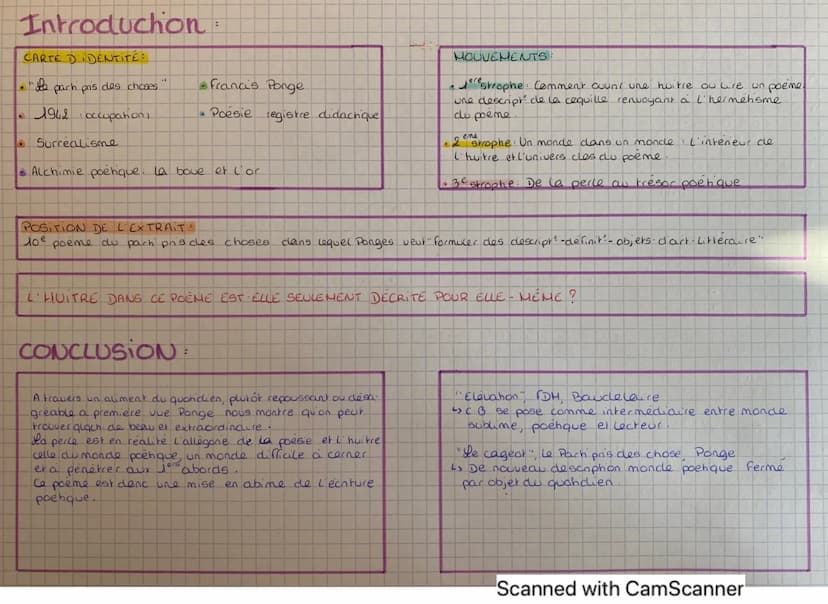 Introduction :
CARTE D'IDENTITÉ:
• "Le parti pris des choses"
• Francis Ponge
• 1942 : occupation
• Poésie registre didactique
• Surréalisme
• Alchimie poétique: la boue et l'or
MOUVEMENTS:
• 1ere strophe: Comment ouvrir une huître ou lire un poème
une descript° de la coquille renvoyant à l'hermétisme
du poème.
• 2eme strophe: Un monde dans un monde : l'intérieur de
l'huître et l'univers clos du poème.
• 3e strophe: De la perle au trésor poétique
POSITION DE L'EXTRAIT:
10e poème du parti pris des choses dans lequel Ponges veut "formuler des descript°-définit°-objets-d'art-littéraire"
L'HUITRE DANS CE POÈME EST-ELLE SEULEMENT DÉCRITE POUR ELLE-MÊME ?
CONCLUSION :
A travers un aliment du quotidien, plutôt repoussant ou désa-
gréable a première vue Ponge nous montre qu'on peut
trouver qlqch de beau et extraordinaire.
La perle est en réalité l'allégorie de la poésie et l'huitre
celle du monde poétique, un monde difficile à cerner
et à pénétrer aux 1ers abords.
Ce poème est donc une mise en abime de l'écriture
poétique.
"Elévation", FDM, Baudelaire
↳ CB se pose comme intermédiaire entre monde
sublime, poétique et lecteur.
"Le cageot", Le Parti pris des chose, Ponge
↳ De nouveau description monde poétique fermé
par objet du quotidien.
Scanned with CamScanner